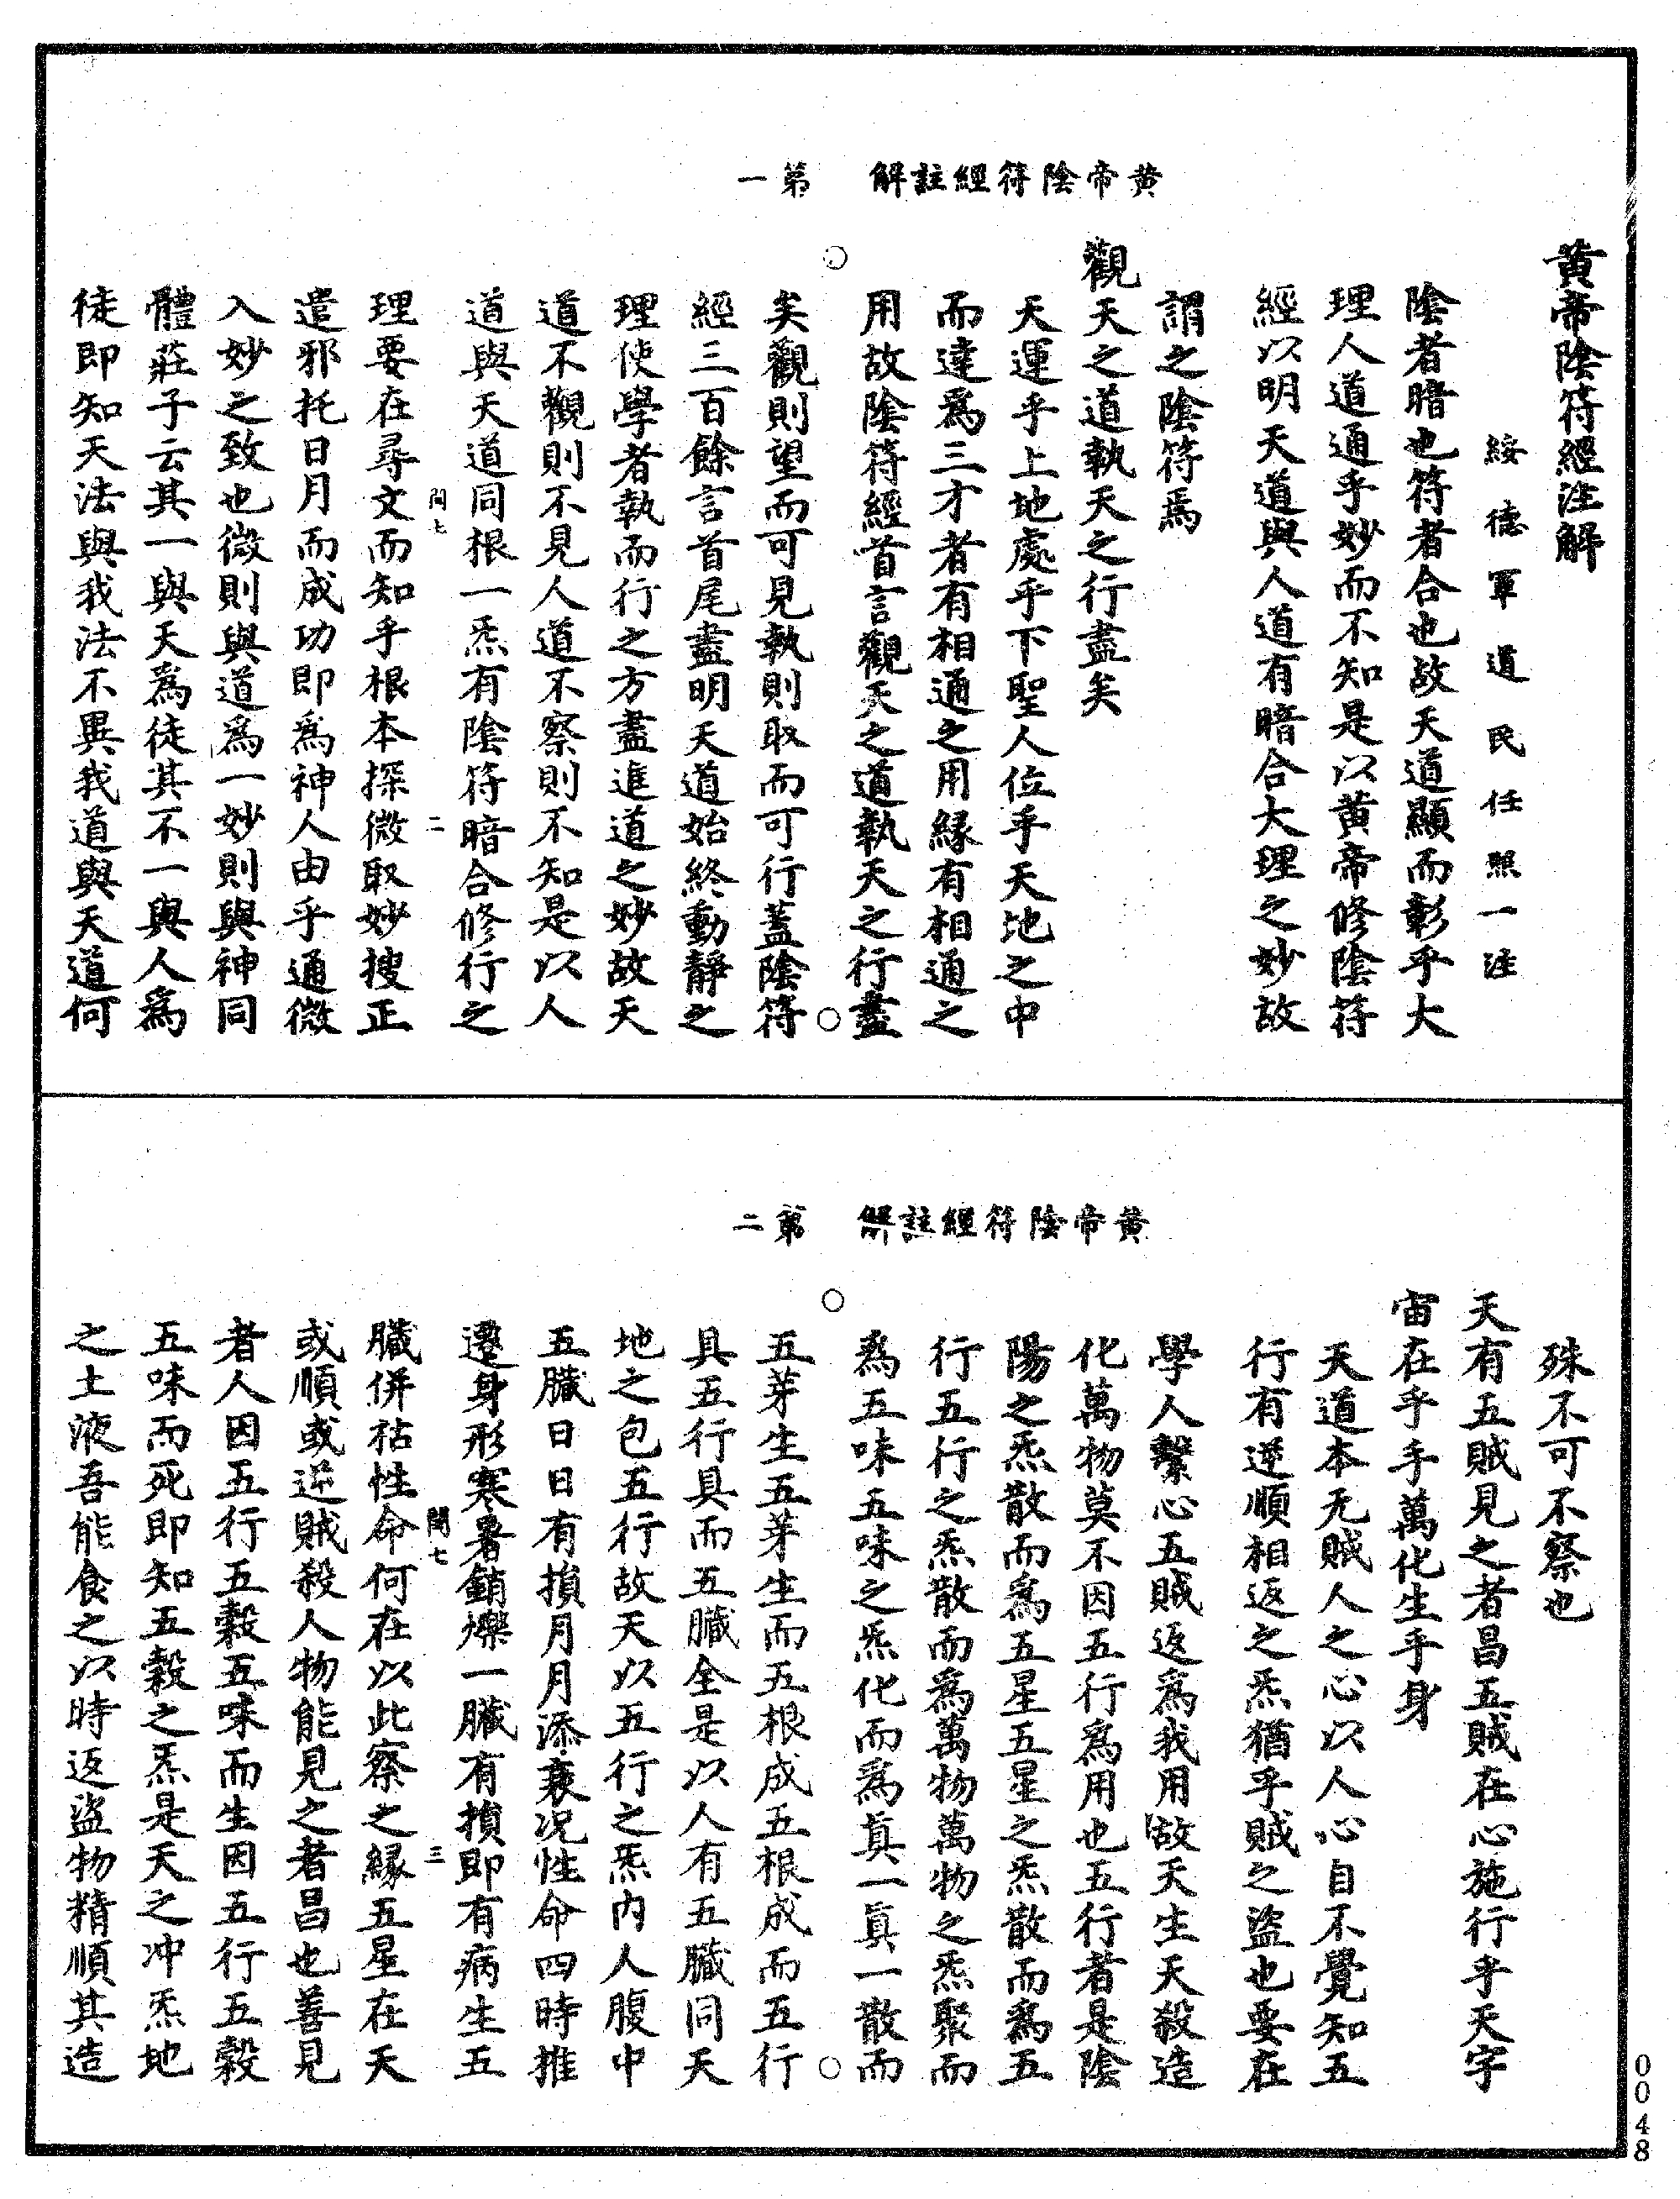 黃帝陰符經註解 第一
黃帝陰符經注解
綏德軍道民任照一注
陰者暗也符者合也故天道顯而彰乎大
理人道通乎妙而不知是以黃帝修陰符
經以明天道與人道有暗合大理之妙故
謂之陰符焉
觀天之道執天之行盡矣
天運乎上地處乎下聖人位乎天地之中
而達為三才者有相通之用緣有相通之
用故陰符經首言觀天之道執天之行盡
矣觀則望而可見執則取而可行蓋陰符
經三百餘言首尾盡明天道始終動靜之
理使學者執而行之方盡進道之妙故天
道不觀則不見人道不察則不知是以人
道與天道同根一炁有陰符暗合修行之
閏七 二
理要在尋文而知乎根本探微取妙搜正
遣邪托日月而成功即為神人由乎通微
入妙之致也微則與道為一妙則與神同
體莊子云其一與天為徒其不一與人為
徒即知天法與我法不異我道與天道何
黃帝陰符經註解 第二
殊不可不察也
天有五賊見之者昌五賊在心施行乎天宇
宙在乎手萬化生乎身
天道本无賊人之心以人心自不覺知五
行有逆順相返之炁猶乎賊之盜也要在
學人繫心五賊返為我用故天生天殺造
化萬物莫不因五行為用也五行者是陰
陽之炁散而為五星五星之炁散而為五
行五行之炁散而為萬物萬物之炁聚而
為五味五味之炁化而為真一真一散而
五芽生五芽生而五根成五根成而五行
具五行具而五臟全是以人有五臟同天
地之包五行故天以五行之炁內人腹中
五臟日日有損月月添衰況性命四時推
遷身形寒暑銷爍一臟有損即有病生五
閏七 三
臟併枯性命何在以此察之緣五星在天
或順或逆賊殺人物能見之者昌也善見
者人因五行五穀五味而生因五行五穀
五味而死即知五穀之炁是天之沖炁地
之土液吾能食之以時返盜物精順其造
0048